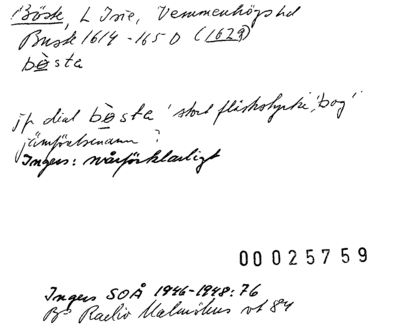 Böste, L Isie, Vemmenhögs hd
Busk 1614-1650 (1629)
bèsta
jfr dial bèsta 'stort fläskstycke', 'bog'
jämförelsenamn?
Ingers: svårförklarligt
00025759
Ingers SOÅ 1946-1948:76
Bs Radio Malmöhus vt 84